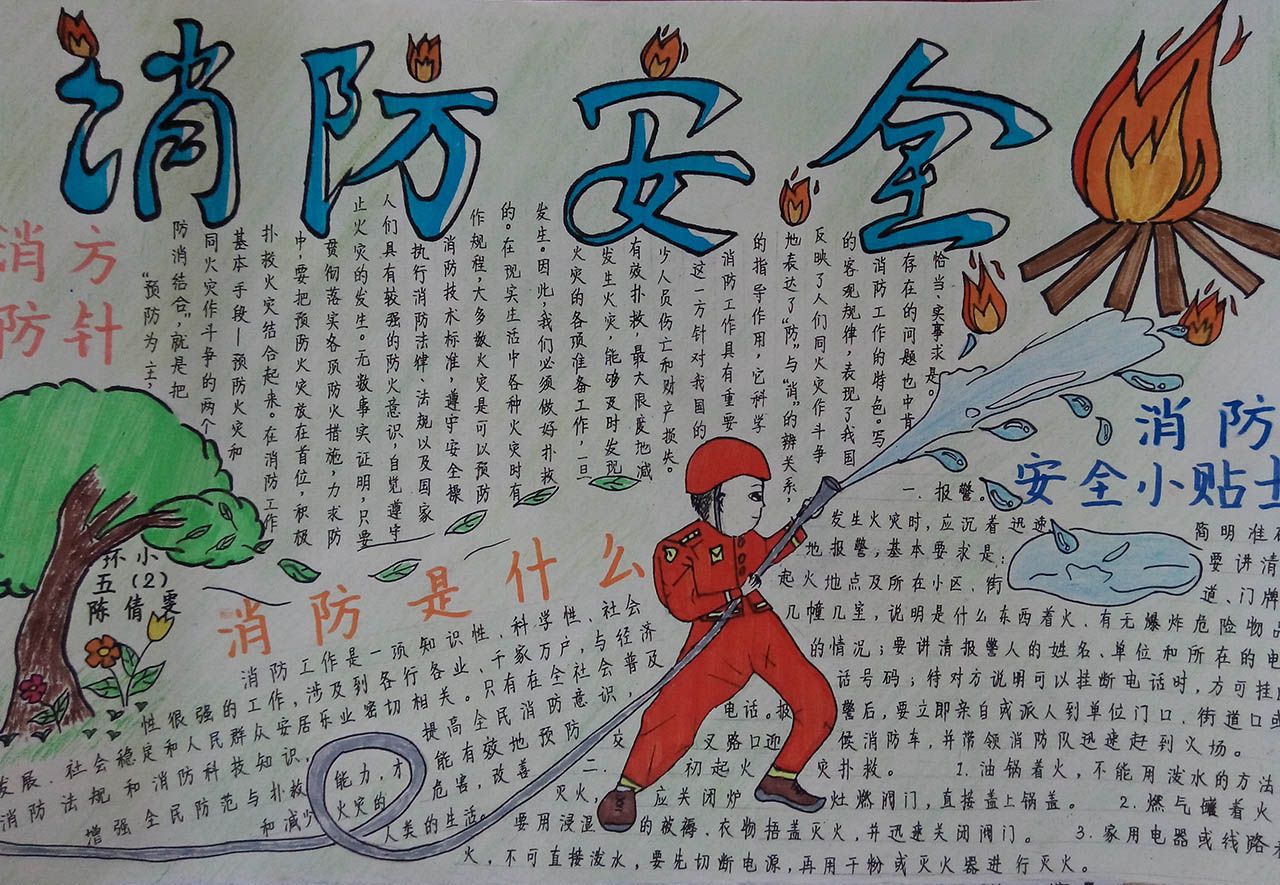 消防安全
消方
防针
“预防为主，
防消结合”，就是把
同火灾作斗争的两个
基本手段—预防火灾和
扑救火灾结合起来。在消防工作
中，要把预防火灾放在首位，积极
贯彻落实各项防火措施，力求防
止火灾的发生。无数事实证明，只要
人们具有较强的防火意识，自觉遵守
执行消防法律、法规以及国家
消防技术标准，遵守安全操
作规程，大多数火灾是可以预防
的。在现实生活中各种火灾时有
发生。因此，我们必须做好扑救
火灾的各项准备工作，一旦
发生火灾，能够及时发现
有效扑救，最大限度地减
少人员伤亡和财产损失。
这一方针对我国的
消防工作具有重要
的指导作用，它科学
地表达了“防”与“消”的辨关系，
反映了人们同火灾作斗争
的客观规律，表现了我国
消防工作的特色。写
存在的问题也中肯
恰当、实事求是。
环小
五(2)
陈倩雯
消防是什么
消防工作是一项知识性、科学性、社会
性很强的工作，涉及到各行各业、千家万户，与经济
发展、社会稳定和人民群众安居乐业密切相关。只有在全社会普及
消防法规和消防科技知识，提高全民消防意识，
增强全民防范与扑救能力，才能有效地预防
和减少火灾的危害，改善
人类的生活。
消防
安全小贴士
一、报警。
发生火灾时，应沉着迅速 简明准确
地报警，基本要求是： 要讲清
起火地点及所在小区、街道、门牌
几幢几室，说明是什么东西着火、有无爆炸危险物品
的情况；要讲清报警人的姓名、单位和所在的电
话号码；待对方说明可以挂断电话时，方可挂断
电话。报警后，要立即亲自或派人到单位门口、街道口或
交叉路口迎候消防车，并带领消防队迅速赶到火场。
二、初起火灾扑救。 1.油锅着火，不能用泼水的方法
灭火，应关闭炉灶燃阀门，直接盖上锅盖。 2.燃气罐着火
要用浸湿的被褥、衣物捂盖灭火，并迅速关闭阀门。 3.家用电器或线路着
火，不可直接泼水，要先切断电源，再用干粉或灭火器进行灭火。